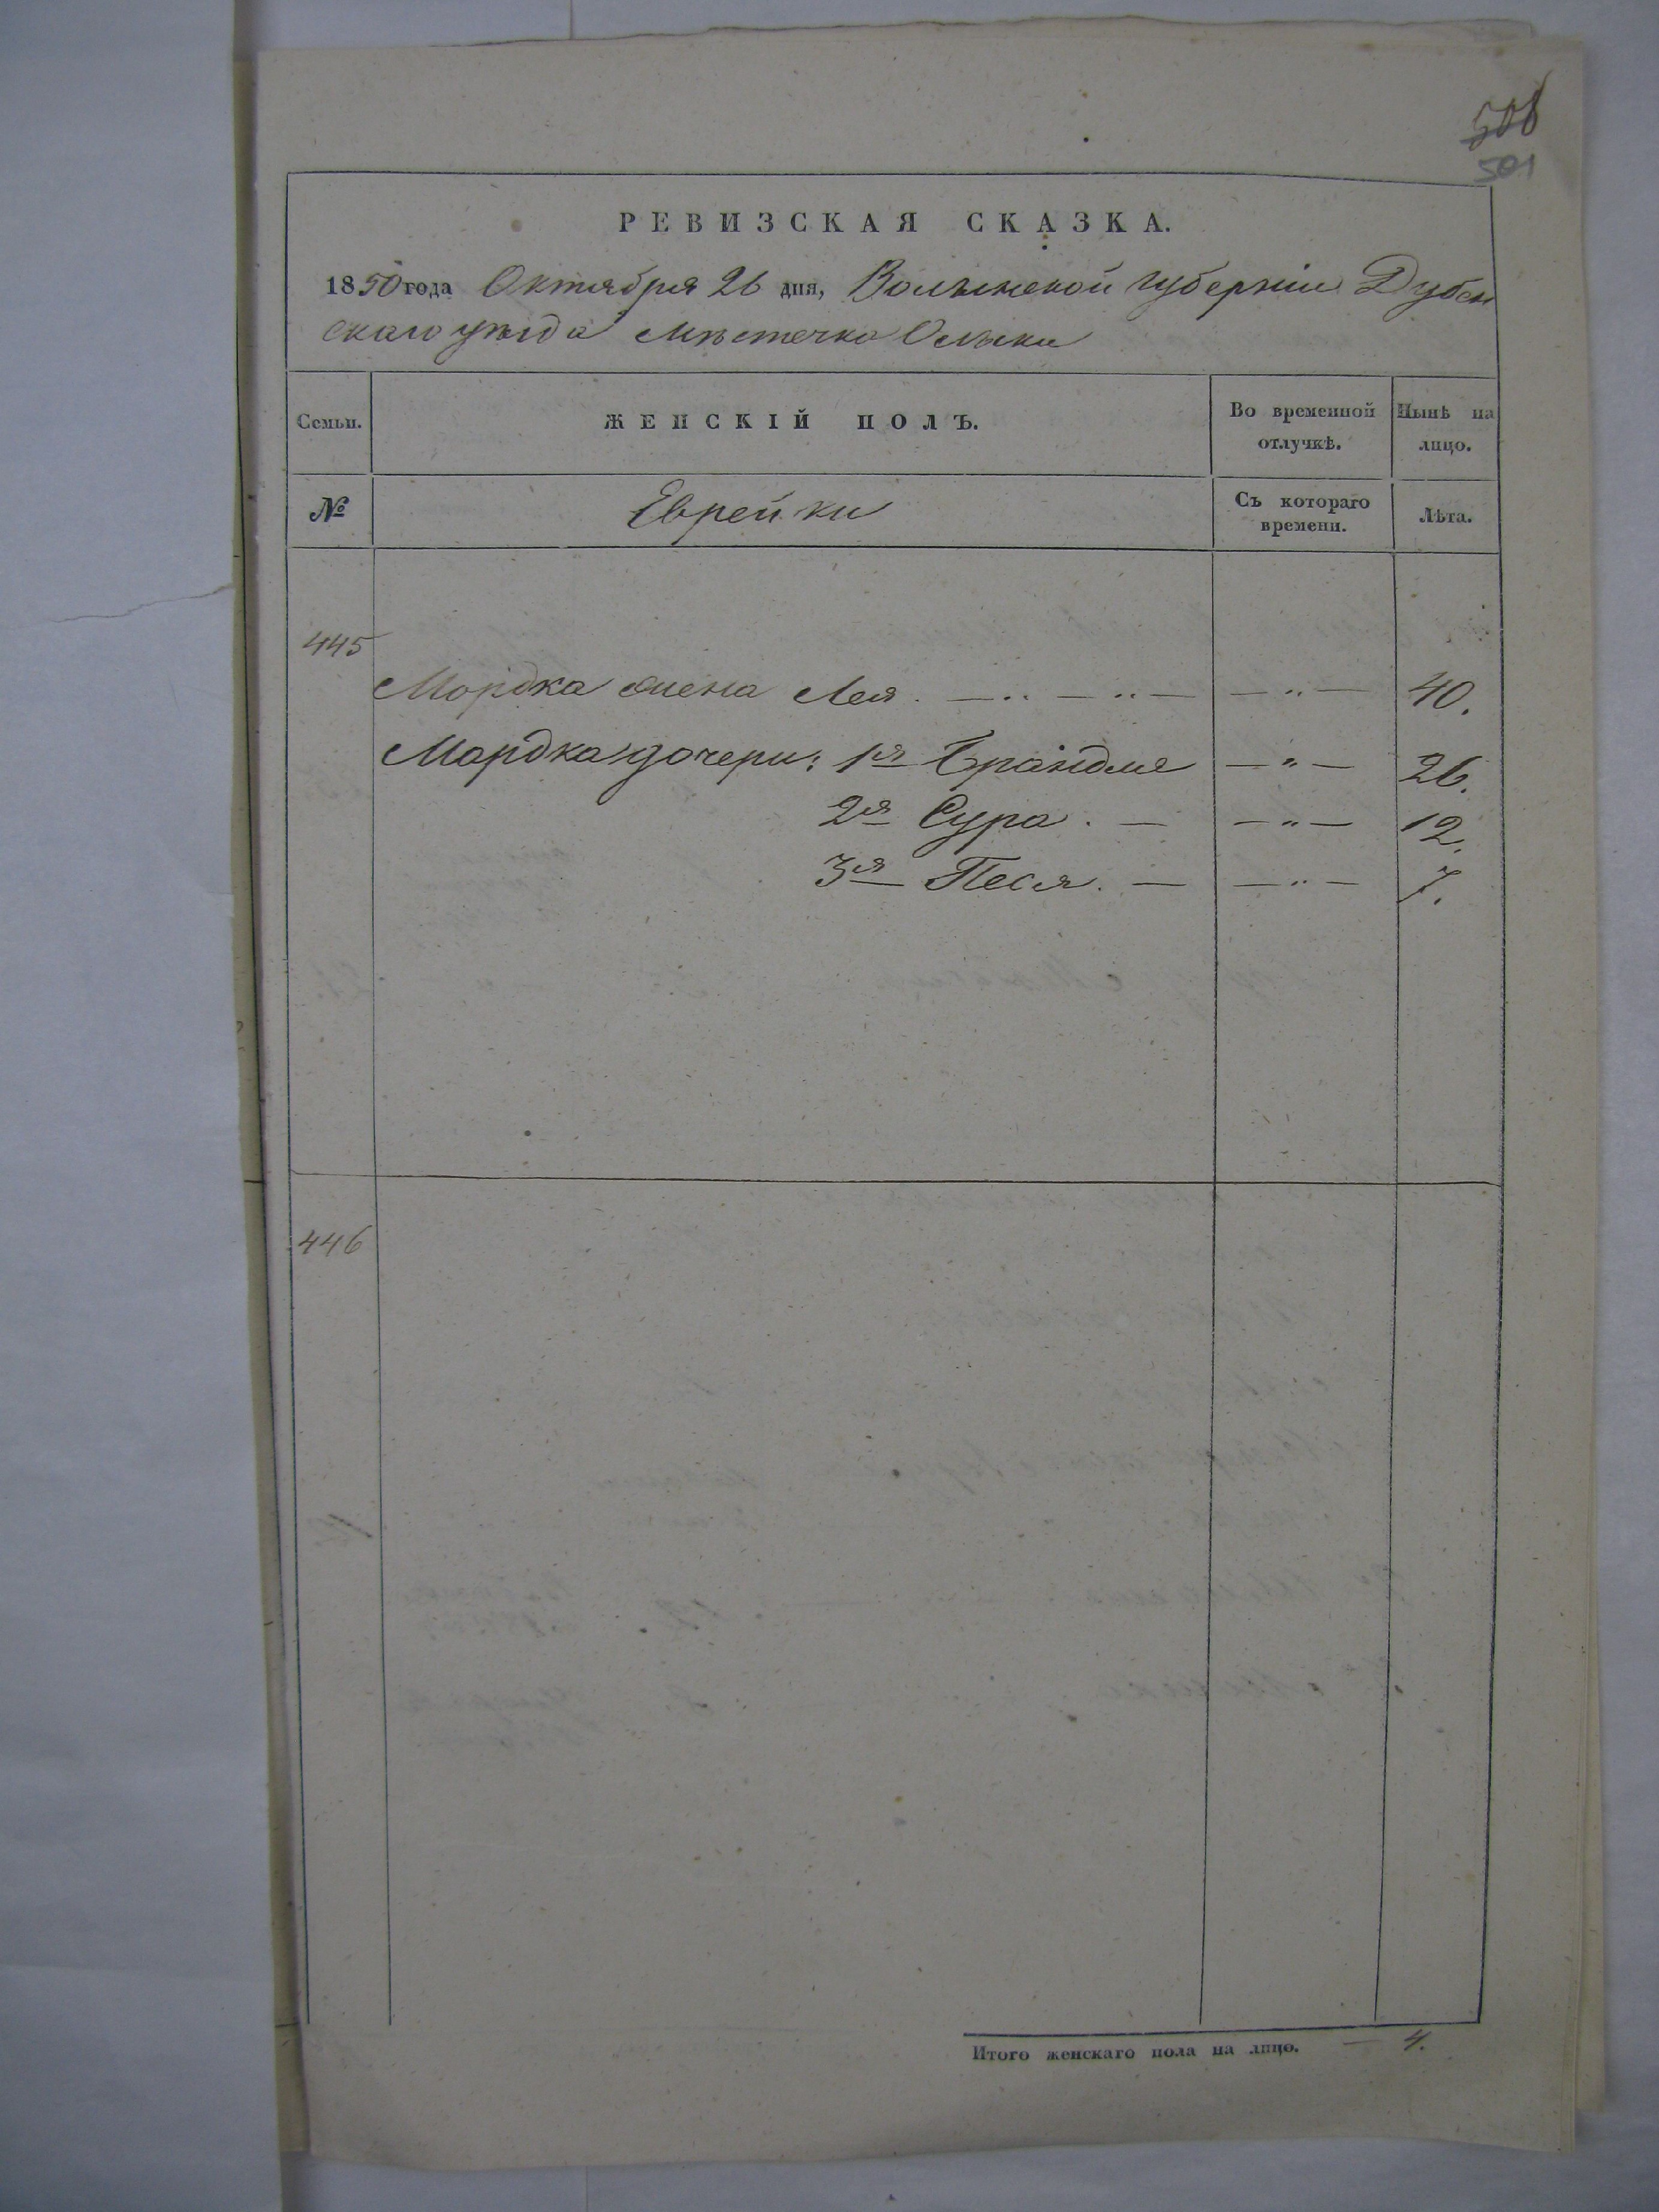 501
РЕВИЗСКАЯ СКАЗКА.
1850 года Октября 26 дня, Волынской губерніи Дубен
скаго уѣзда мѣстечка Олыки
Семьи.
ЖЕНСКІЙ ПОЛЪ.
Во временной отлучкѣ.
Нынѣ на лицо.
№
Еврейки
Съ котораго времени.
Лѣта.
445
Мордка жена Лея . — „ — „ — — „ — 40.
Мордка дочери: 1я Брандля — „ — 26.
2я Сура . — — „ — 12.
3я Песя. — — „ — 7.
446
Итого женскаго пола на лицо. — 4.